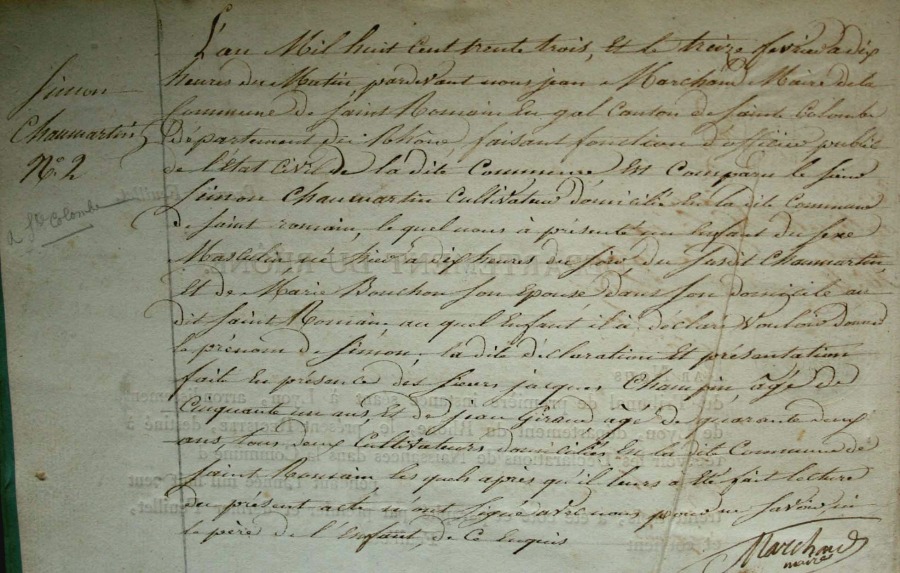 Simon
Chaumartin
N.o 2
a Ste Colombe
L'an Mil huit cent trente trois, Et le treize fevrier a dix
heures du Matin, pardevant nous jean Marchand Maire de la
Commune de Saint Romain En gal Canton de Sainte Colombe
Département du Rhône faisant fonction d'officier public
de l'Etat Civil de la dite Commune Est Comparu le sieur
Simon Chaumartin Cultivateur domicilié En la dite Commune
de saint romain, le quel nous à présenté un Enfant du sexe
Masculin né hier à dix heures du soir, du susdit Chaumartin
Et de Marie Bouchon son Epouse dans son domicile au
dit Saint Romain, au quel Enfant il à déclaré vouloir donner
le prénom de Simon, la dite déclaration Et présentation
faite En présence des sieurs jacques Champin âgé de
Cinquante un ans, Et de jean Giraud âgé de quarante deux
ans, tous deux Cultivateurs domiciliés En la dite Commune de
Saint Romain les quels après qu'il leurs a été fait lecture
du présent acte n'ont signé avec nous pour ne savoir ni
le père de l'Enfant, de Ce Enquis
Marchand
maire